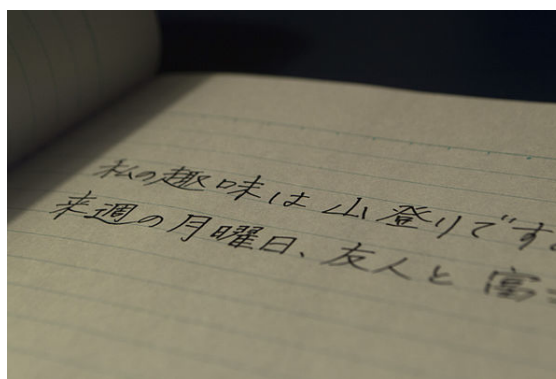 私の趣味は山登りです。
来週の月曜日、友人と富